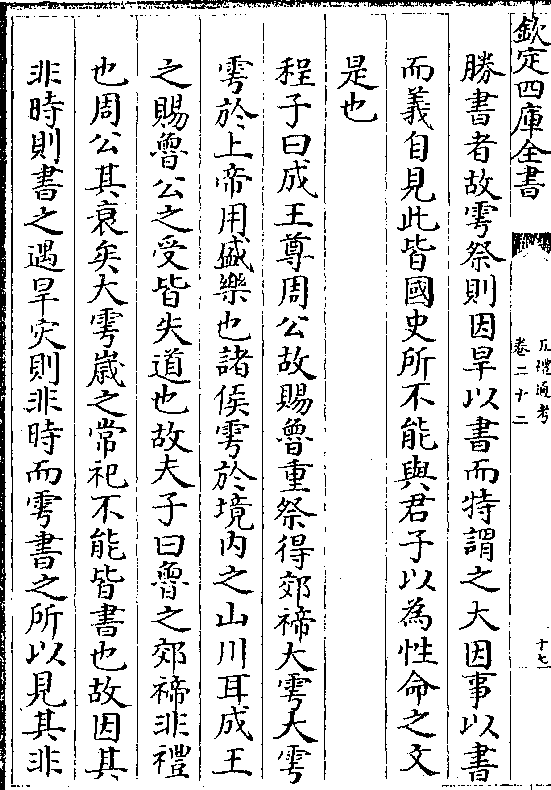 欽定四庫全書
五禮通考
卷二十二
十七
勝書者故雩祭則因旱以書而特謂之大因事以書
而義自見此皆國史所不能與君子以為性命之文
是也
程子曰成王尊周公故賜魯重祭得郊禘大雩大雩
雩於上帝用盛樂也諸侯雩於境内之山川耳成王
之賜魯公之受皆失道也故夫子曰魯之郊禘非禮
也周公其衰矣大雩嵗之常祀不能皆書也故因其
非時則書之遇旱灾則非時而雩書之所以見其非